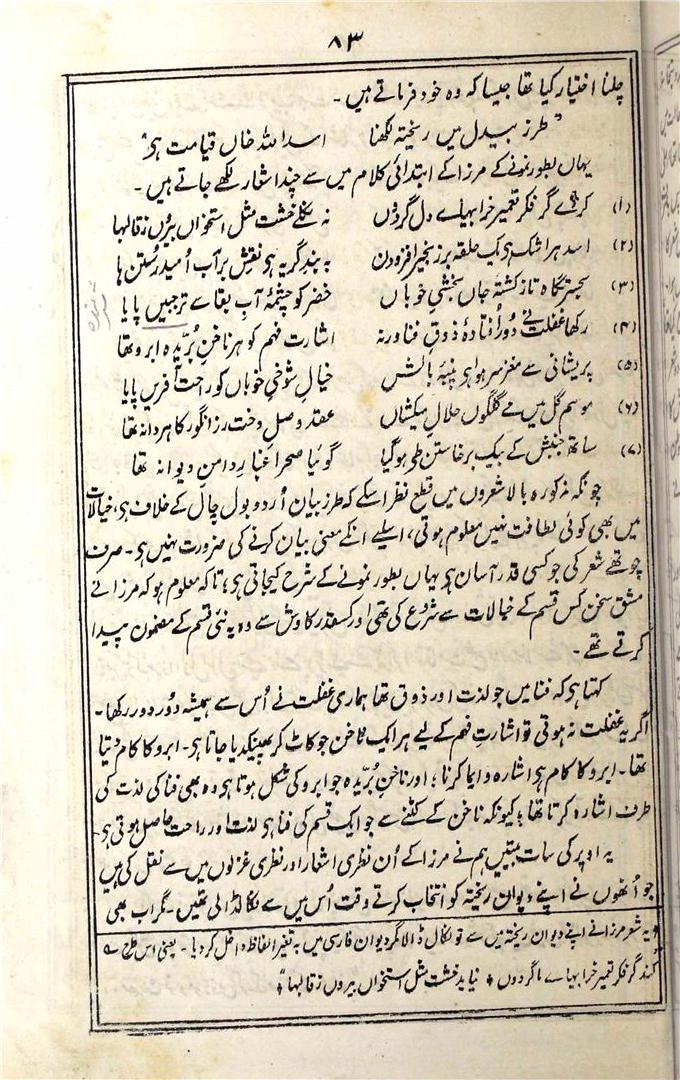 ۸۳
چلنا اختیار کیا تھا جیسا کہ وہ خود فرماتے ہیں۔
"طرز بیدل میں ریختہ لکھنا اسد اللہ خاں قیامت ہی"
یہاں بطور نمونے کے مرزا کے ابتدائی کلام میں سے چند اشعار لکھے جاتے ہیں۔
(۱) کرے گر فکر تعمیر خرابیہاے دل گردوں نہ نکلے خشت مثل استخواں بیروں ز قالبہا
(۲) اسد ہر اشک ہی یک حلقہ بر زنجیر افزودن بہ بند گریہ ہی نقش بر آب اُمید رستن ہا
(۳) بحسرتگاہ ناز کشتۂ جاں بخشیِ خوباں خضر کو چشمۂ آبِ بقا سے تر جبیں پایا
(۴) رکھا غفلت نے دُور اُفتادۂ ذوقِ فنا ورنہ اشارت فہم کو ہر ناخنِ بُریدہ ابرو تھا
(۵) پریشانی سے مغز سر ہوا ہی پنبۂ بالش خیالِ شوخیِ خوباں کو راحت آفریں پایا
(۶) موسم گل میں مے گلگوں حلالِ میکشاں عقد وصلِ دخت رز انگور کا ہر دانہ تھا
(۷) ساتھ جنبش کے بیک برخاستن طی ہو گیا گوئیا صحرا غبارِ دامنِ دیوانہ تھا
چونکہ مذکورہ بالا شعروں میں قطع نظر اسکے کہ طرز بیان اُردو بول چال کے خلاف ہی، خیالات
میں بھی کوئی لطافت نہیں معلوم ہوتی، اسلیے انکے معنی بیان کرنے کی ضرورت نہیں ہی۔ صرف
چوتھے شعر کی جو کسی قدر آسان ہی یہاں بطور نمونے کے شرح کیجاتی ہی؛ تاکہ معلوم ہو کہ مرزا نے
مشق سخن کس قسم کے خیالات سے شروع کی تھی اور کسقدر کاوش سے وہ یہ نئی قسم کے مضمون پیدا
کرتے تھے۔
کہتا ہی کہ فنا میں جو لذت اور ذوق تھا ہماری غفلت نے اُس سے ہمیشہ دُور دور رکھا۔
اگر یہ غفلت نہ ہوتی تو اشارتِ فہم کے لیے ہر ایک ناخن جو کاٹ کر پھینکدیا جاتا ہی۔ ابرو کا کام دیتا
تھا۔ ابرو کا کام ہی اشارہ و ایما کرنا؛ اور ناخنِ بُریدہ جو ابرو کی شکل ہوتا ہی وہ بھی فنا کی لذت کی
طرف اشارہ کرتا تھا؛ کیونکہ ناخن کے کٹنے سے جو ایک قسم کی فنا ہی لذت اور راحت حاصل ہوتی ہی۔
یہ اوپر کی سات بیتیں ہم نے مرزا کے اُن نظری اشعار اور نظری غزلوں میں سے نقل کی ہیں
جو اُنھوں نے اپنے دیوان ریختہ کو انتخاب کرتے وقت اُس میں سے نکالڈالی تھیں۔ مگر اب بھی
یہ شعر مرزا نے اپنے دیوان ریختہ میں سے تو نکال ڈالا مگر دیوان فارسی میں بہ تغیر الفاظ داخل کر دیا۔ یعنی اس طرح ہے
"کند گر فکر تعمیر خرابیہاے ما گردوں * نیاید خشت مثل استخواں بیروں ز قالبہا"